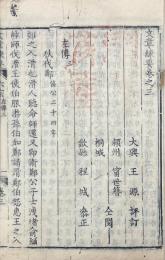 文章練要卷之三
大興 王源 評訂
潁州 甯世簪
桐城
歙縣 程城 參正
左傳
狄伐鄭 僖公二十四年
鄭之入滑也滑人聽命師還又即衛鄭公子士洩堵俞彌
帥師伐滑王使伯服游孫伯如鄭請滑鄭伯怨惠王之入